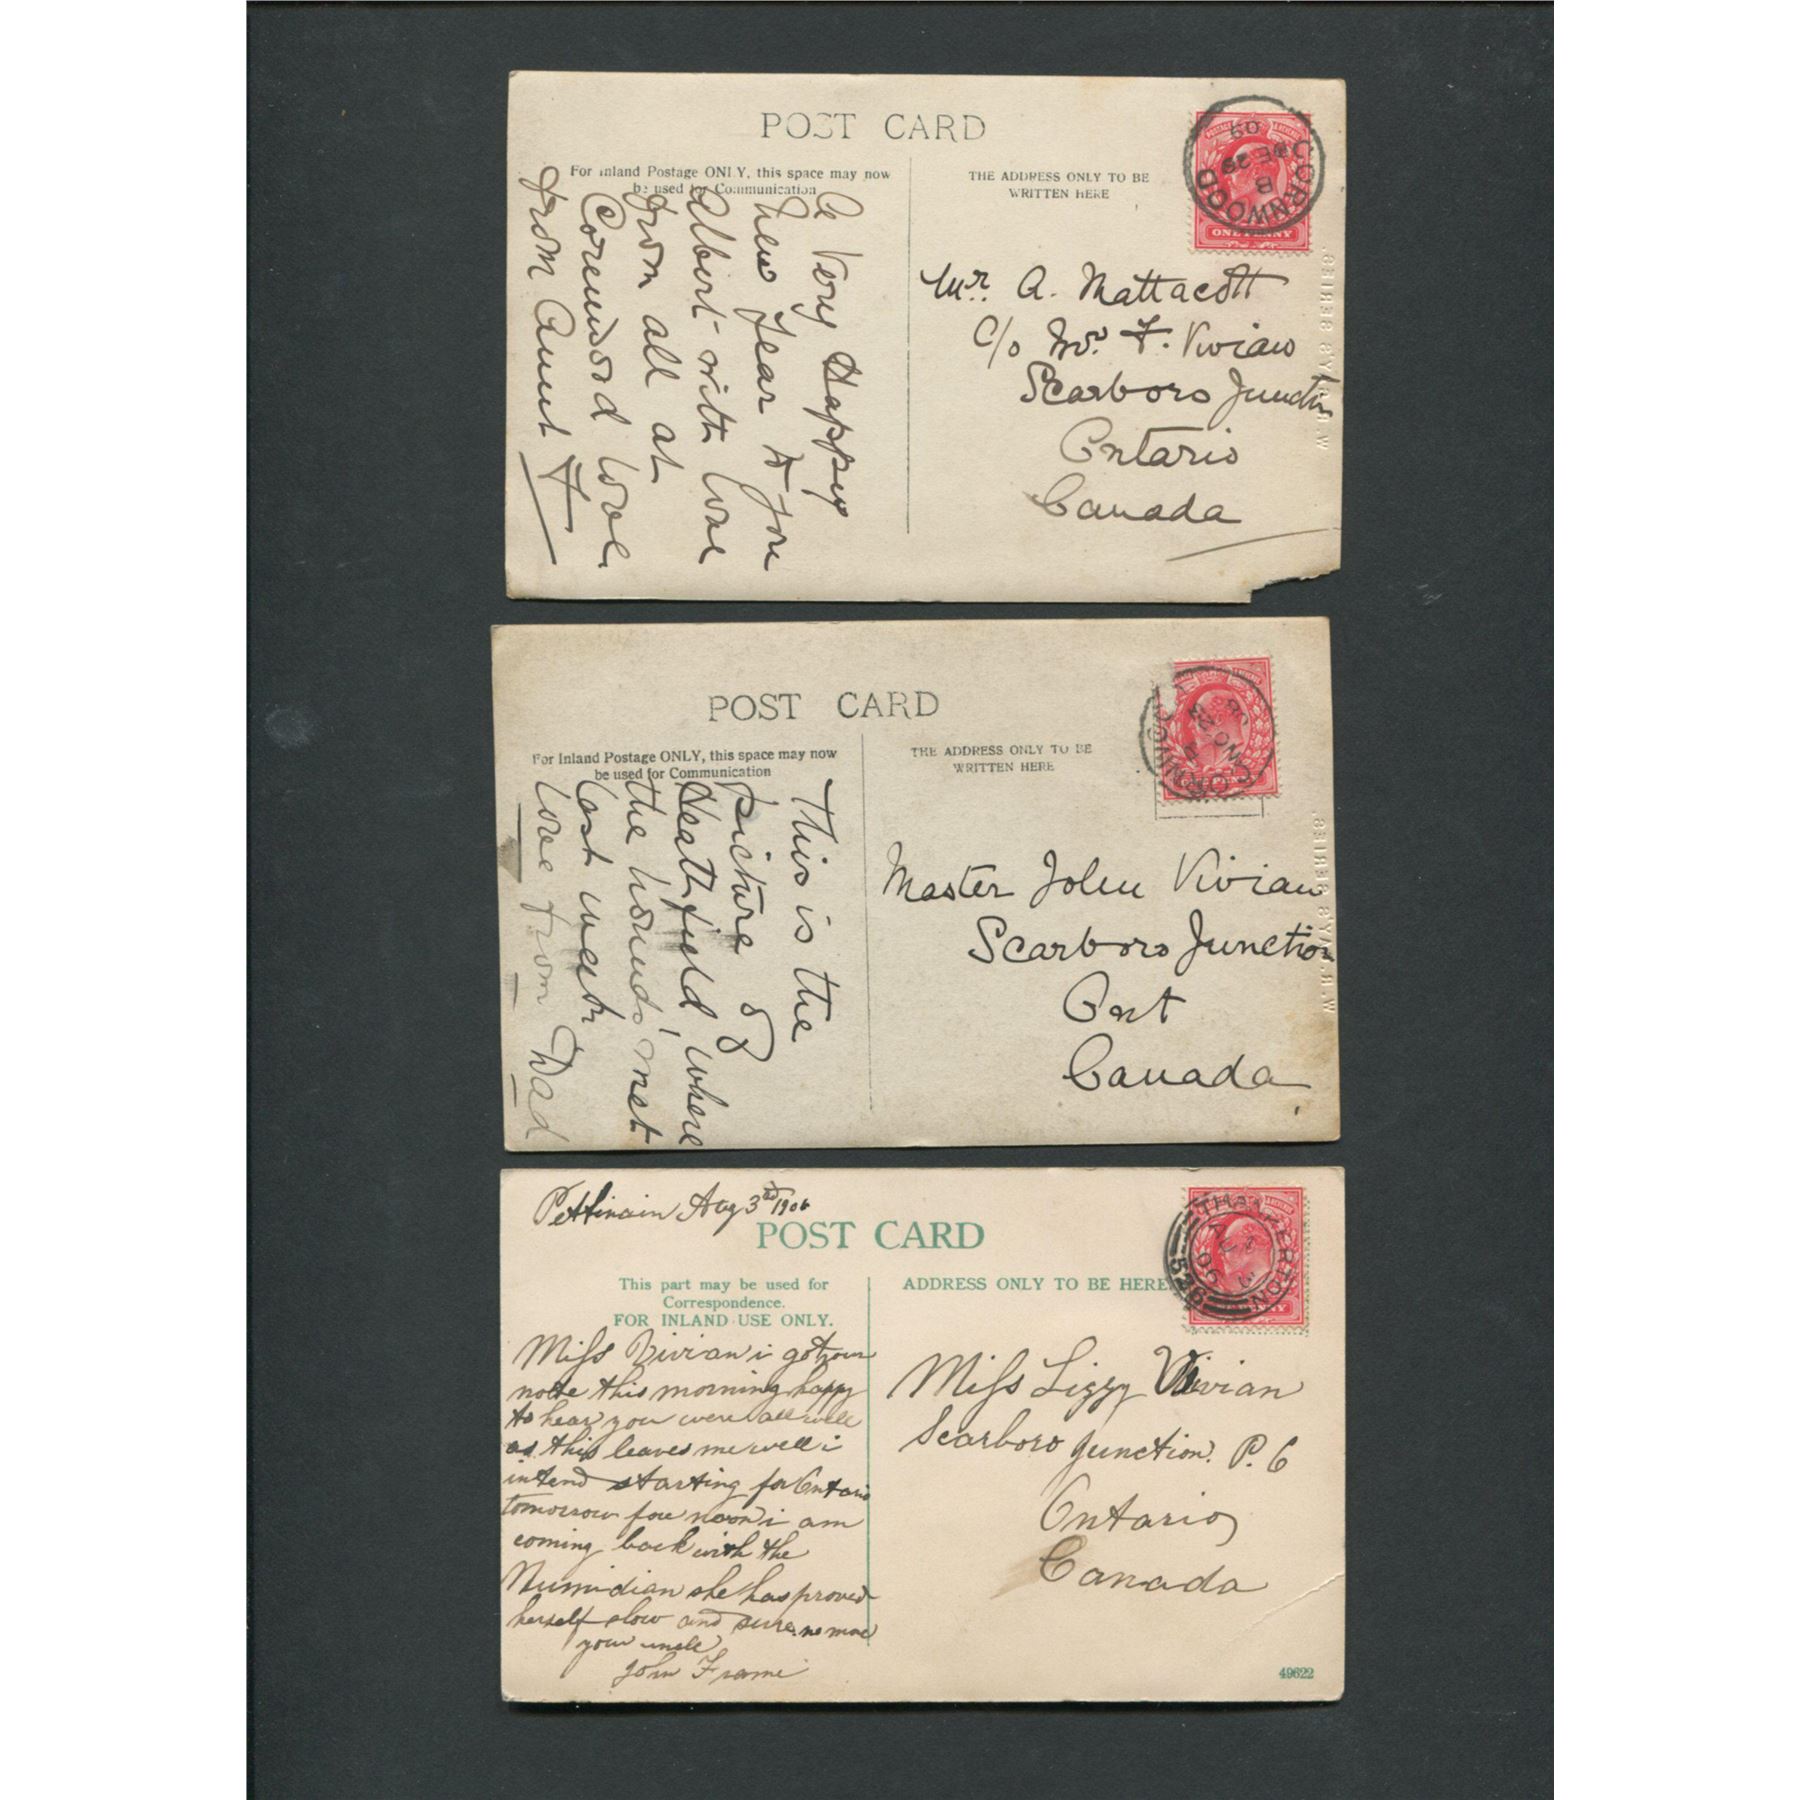 POST CARD
For Inland Postage ONLY, this space may now
be used for Communication
THE ADDRESS ONLY TO BE
WRITTEN HERE
CORNWOOD
B
DE 29
09
ONE PENNY
A Very Happy
New Year to you
Albert with love
from all at
Corenwood love
from Aunt F
Mr. A. Mattacott
C/o Mr. F. Vivian
Scarboro Junction
Ontario
Canada
POST CARD
For Inland Postage ONLY, this space may now
be used for Communication
THE ADDRESS ONLY TO BE
WRITTEN HERE
CORNWOOD
08
This is the
picture of
Heathfield, where
the hounds met
last week
love from Dad
Master John Vivian
Scarboro Junction
Ont
Canada
Pettinain Aug 3rd 1906
POST CARD
This part may be used for
Correspondence.
FOR INLAND USE ONLY.
ADDRESS ONLY TO BE HERE
THANKERTON
AU 3
06
526
Miss Vivian i got your
note this morning happy
to hear you were all well
as this leaves me well i
intend starting for Ontario
tomorrow fore noon i am
coming back with the
Numidian she has proved
herself slow and sure. no more
your uncle
John Frame
Miss Lizzy Vivian
Scarboro Junction. P. O
Ontario
Canada
49622